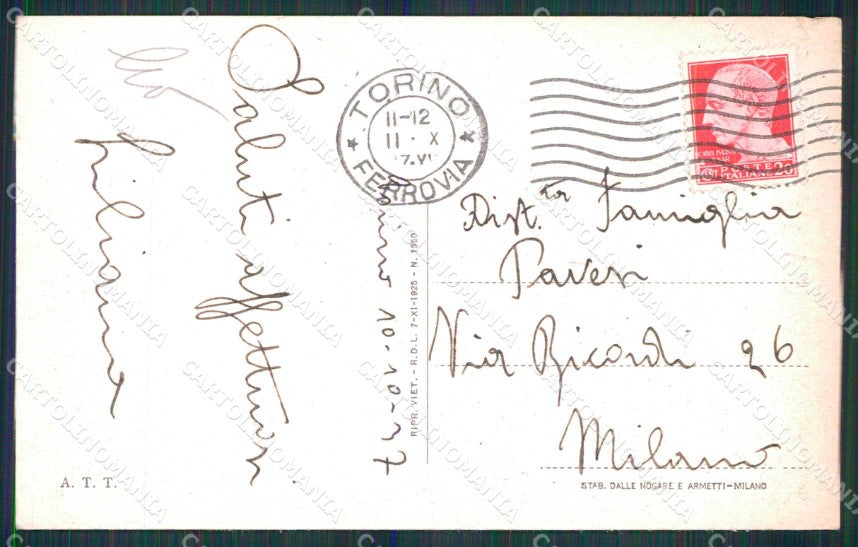 Saluti affettuosi
Giuliana
Torino 10-10-37
TORINO
FERROVIA
11-12
11 · X
POSTE
ITALIANE 20
Dist.ta Famiglia
Pavesi
Via Ricordi 26
Milano
RIPR. VIET. - R.D.L. 7-XI-1925 - N. 1950
A. T. T.
STAB. DALLE NOGARE E ARMETTI-MILANO
CARTOLINOMANIA